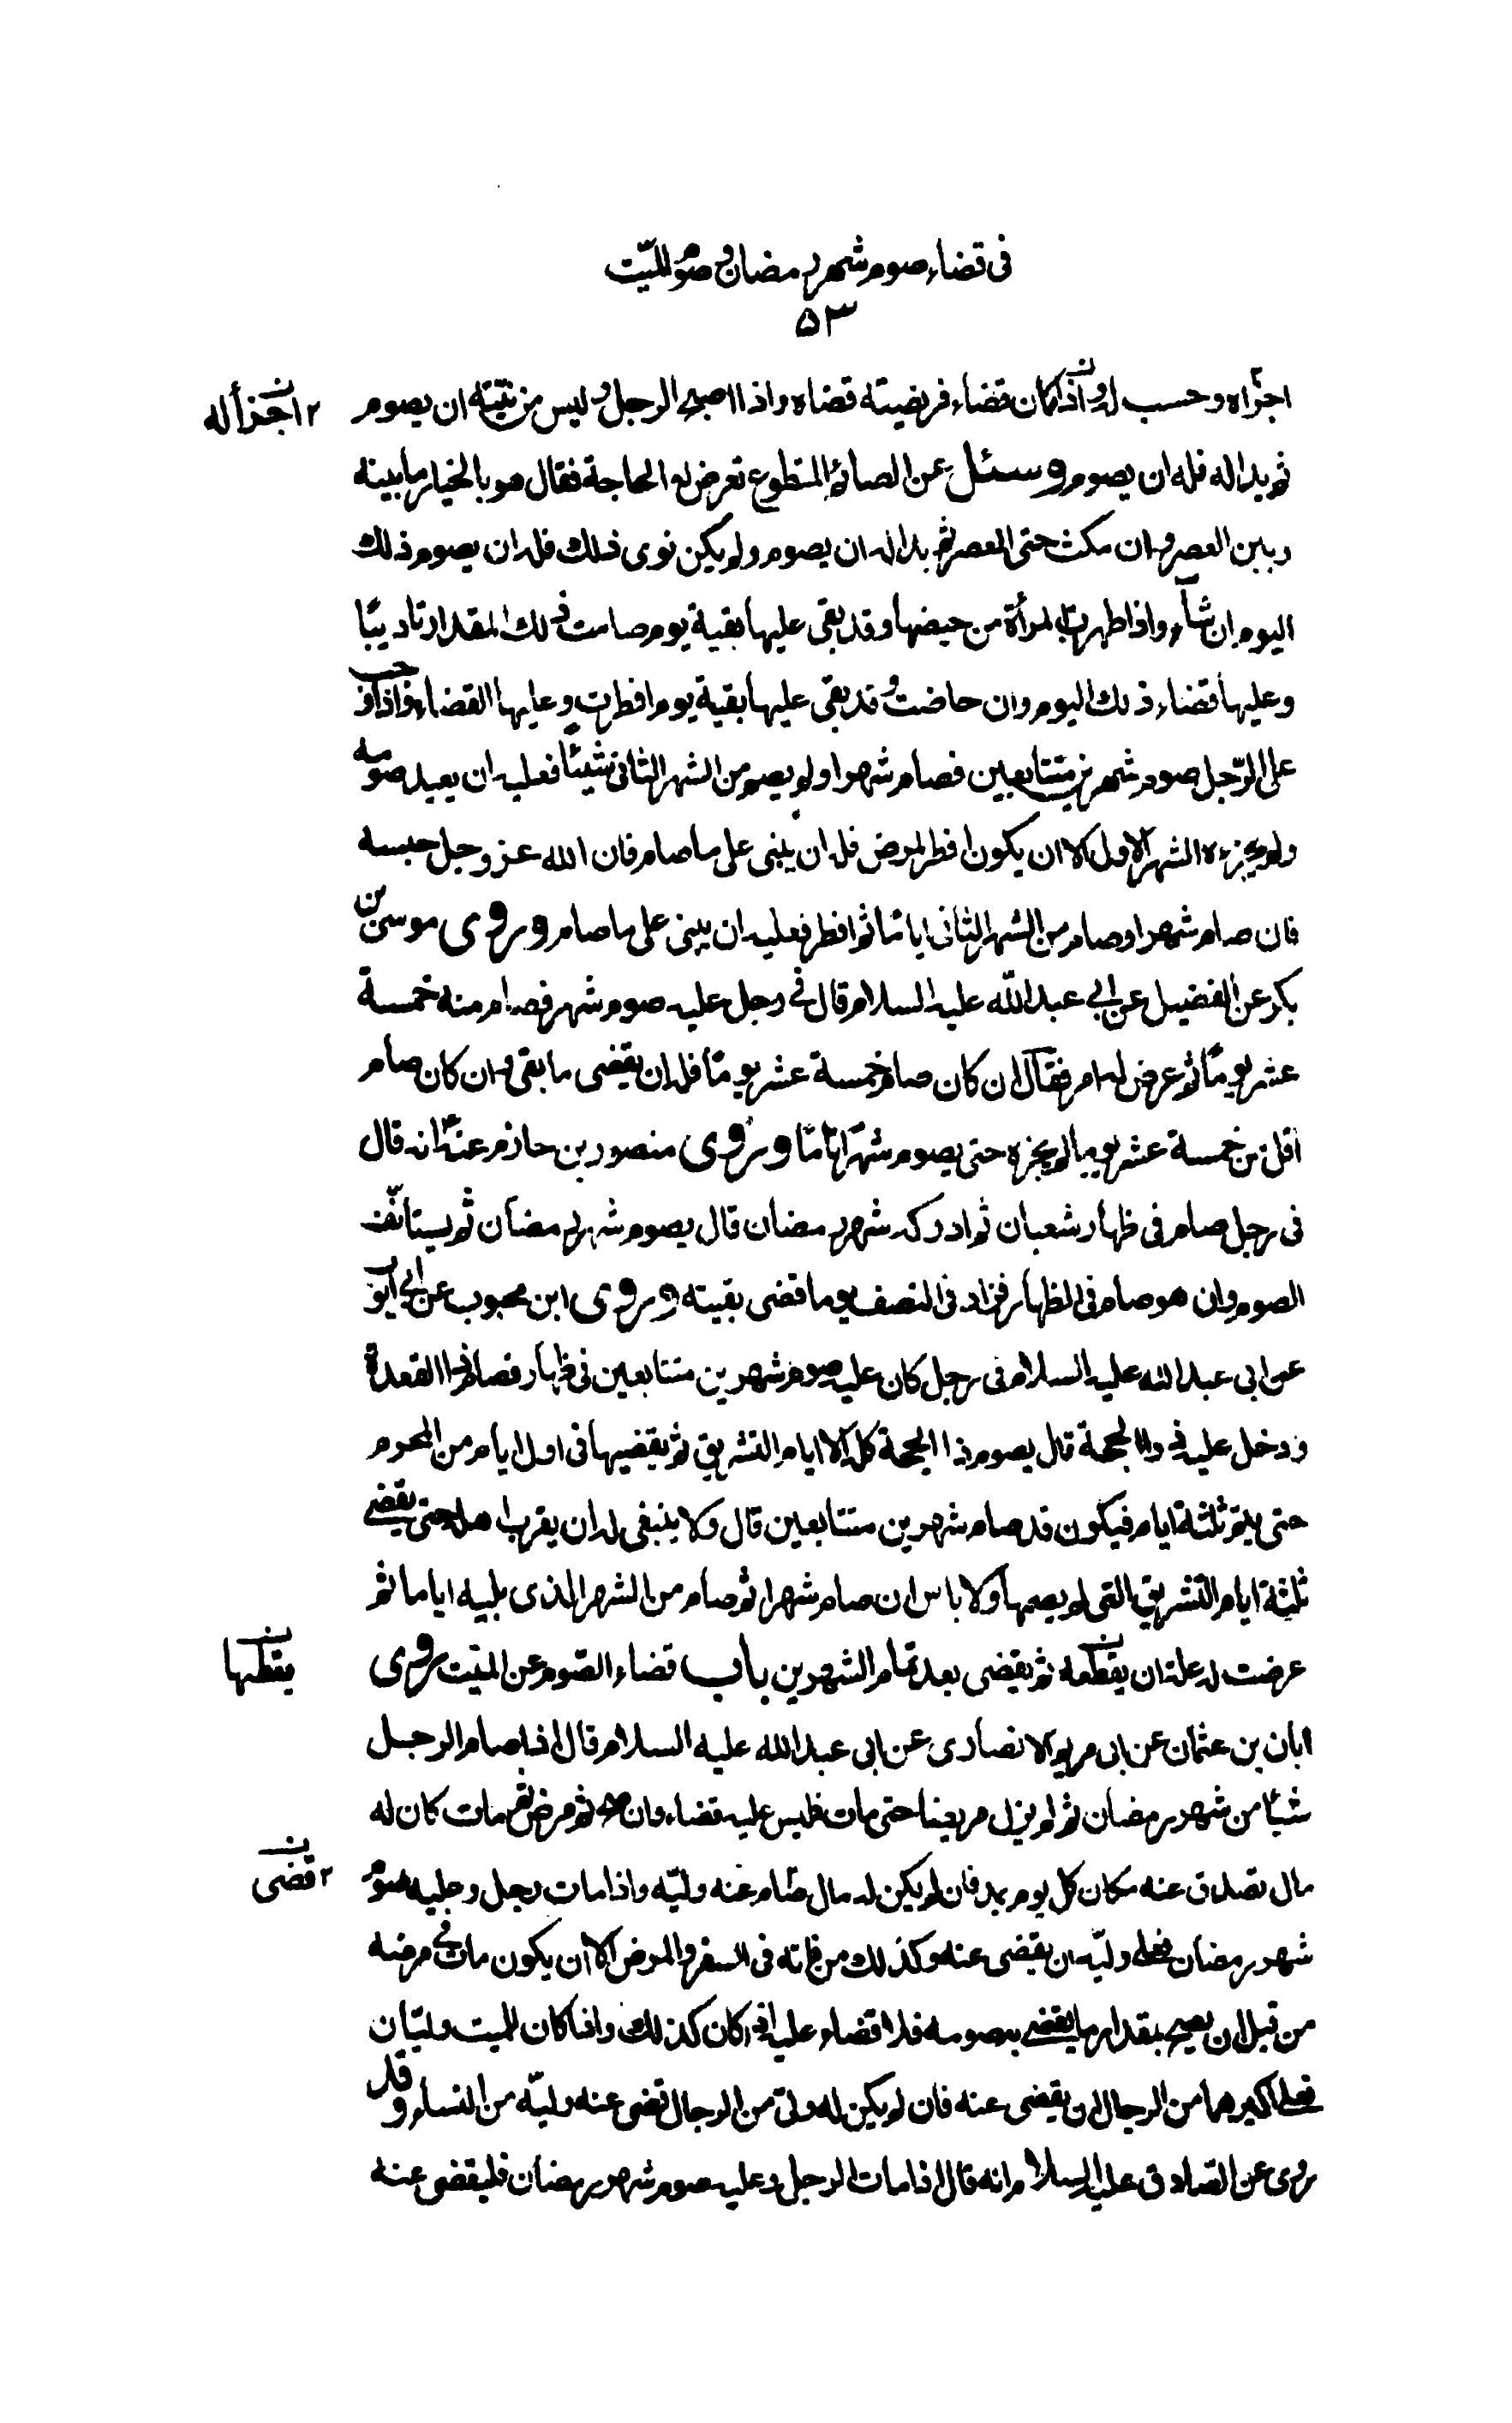 فى قضاء صوم شهر رمضان و صوم الميّت
٥٣
اجزأه وحسب له وان كان قضاء فريضيته قضاه واذا اصبح الرجل وليس من نيّته ان يصوم
٢ اجزأله
ثم بدا له فله ان يصوم وسئل عن الصائم المتطوع تعرض له الحاجة فقال هو بالخيار ما بينه
وبين العصر وان مكث حتى العصر ثم بدا له ان يصوم ولم يكن نوى ذلك فله ان يصوم ذلك
اليوم ان شاء واذا طهرت المرأة من حيضها وقد بقى عليها بقية يوم صامت ذلك المقدار تاديبًا
وعليها قضاء ذلك اليوم وان حاضت وقد بقى عليها بقية يوم افطرت وعليها القضاء واذا وجب
على الرّجل صوم شهرين متتابعين فصام شهرا ولم يصم من الشهر الثانى شيئًا فعليه ان يعيد صومه
ولم يجزءه الشهر الاول الا ان يكون افطر لمرض فله ان يبنى على ما صام فان الله عز وجل حبسه
فان صام شهرا وصام من الشهر الثانى ايامًا ثم افطر فعليه ان يبنى على ما صام وروى موسى بن
بكر عن الفضيل عن ابى عبد اللّه عليه السلام قال فى رجل عليه صوم شهر فصام منه خمسة
عشر يومًا ثم عرض له امر فقال ان كان صام خمسة عشر يومًا فله ان يقضى ما بقى وان كان صام
اقل من خمسة عشر يوما لم يجزه حتى يصوم شهرًا تامًا وروى منصور بن حازم عنه ع انه قال
فى رجل صام فى ظهار شعبان ثم ادركه شهر رمضان قال يصوم شهر رمضان ثم يستانف
الصوم وان هو صام فى الظهار فزاد فى النصف يوما قضى بقيته وروى ابن محبوب عن ابى ايوب
عن ابى عبد الله عليه السلام فى رجل كان عليه صوم شهرين متتابعين فى ظهار فصام ذا القعدة
ودخل عليه ذو الحجة قال يصوم ذا الحجة كله الا ايام التشريق ثم يقضيها فى اول ايام من المحرم
حتى يتم ثلثة ايام فيكون قد صام شهرين متتابعين قال ولا ينبغى له ان يقرب اهله حتى يقضى
ثلثة ايام التشريق التى لم يصمها ولا باس ان صام شهرا ثم صام من الشهر الذى يليه اياما ثم
عرضت له علة ان يقطعه ثم يقضى بعد تمام الشهرين باب قضاء الصّوم عن الميّت روى
يقطعها
ابان بن عثمان عن ابى مريم الانصارى عن ابى عبد الله عليه السلام قال اذا صام الرجل
شيئًا من شهر رمضان ثم لم يزل مريضا حتى مات فليس عليه قضاء وان صح ثم مرض ثم مات كان له
مال تصدق عنه مكان كل يوم بمد فان لم يكن له مال صام عنه وليّه واذا مات رجل وعليه صوم
٢ قضى
شهر رمضان فعلى وليّه ان يقضى عنه وكذلك من فاته فى السفر والمرض الا ان يكون مات فى مرضه
من قبل ان يصح بمقدار ما يقضى به صومه فلا قضاء عليه اذا كان كذلك واذا كان للميت وليّان
فعلى اكبرهما من الرجال ان يقضى عنه فان لم يكن له ولىّ من الرجال قضى عنه وليّه من النساء وقد
روى عن الصّادق عليه السلام انه قال اذا مات الرجل وعليه صوم شهر رمضان فليقض عنه